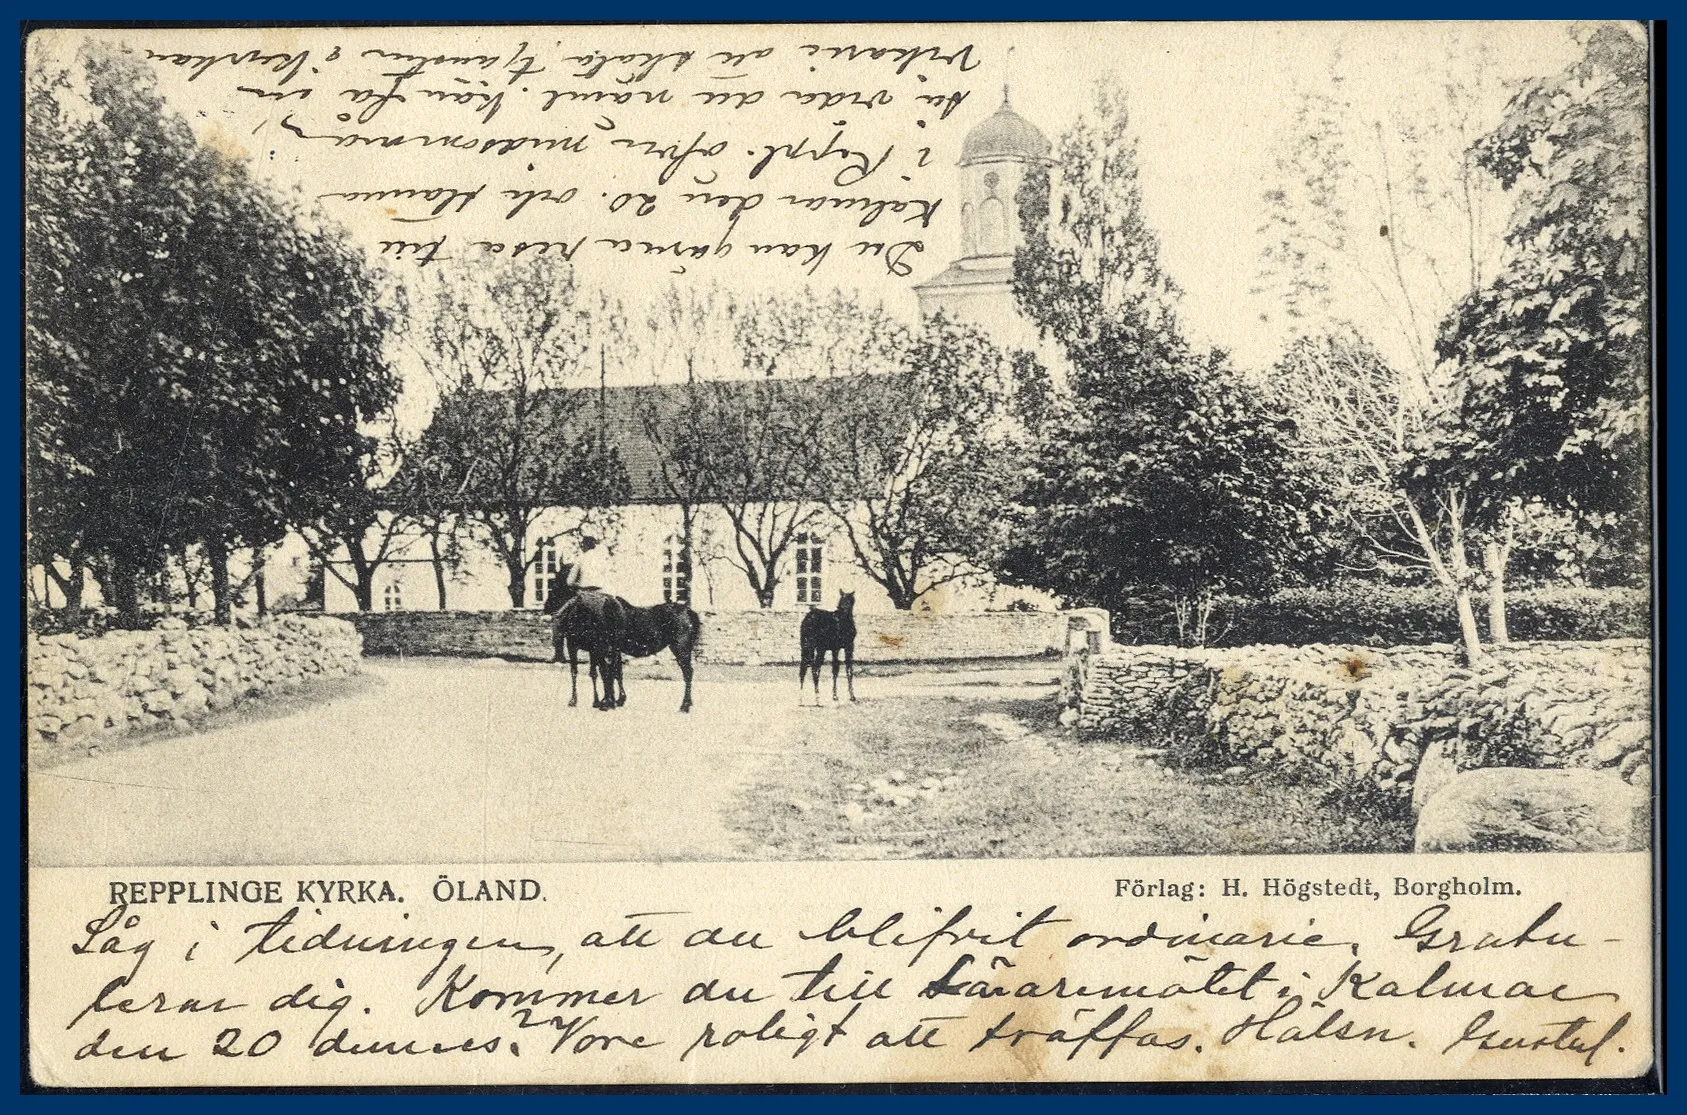 Du kan gärna resa till
Kalmar den 20. och stanna
i Reppl. öfver midsommar,
så vida du näml. kan få en
vikarie att sköta tjänsten i kyrkan
REPPLINGE KYRKA. ÖLAND.
Förlag: H. Högstedt, Borgholm.
Såg i tidningen, att du blifvit ordinarie. Gratu-
lerar dig. Kommer du till Läraremötet i Kalmar
den 20 dennes? Vore roligt att träffas. Hälsn. Gustaf.